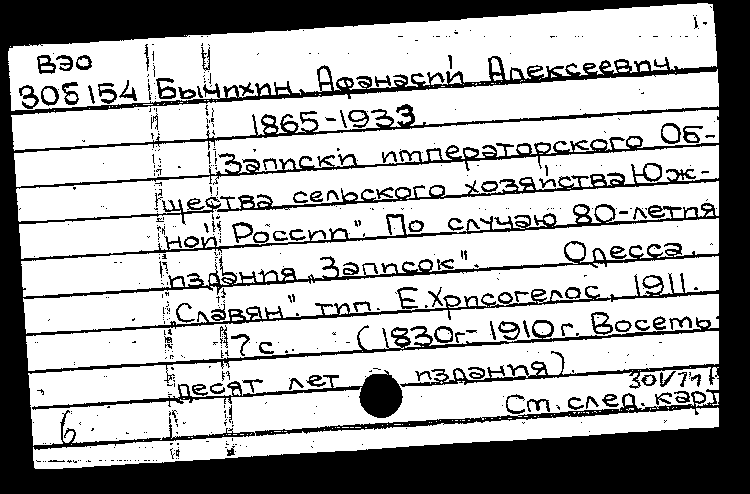 1.
ВЭО
305154 Бычихин, Афанасий Алексеевич.
1865-1933.
Записки императорского Об-
щества сельского хозяйства Юж-
ной России". По случаю 80-летия
издания „Записок". Одесса,
„Славян". тип. Е. Хрисогелос, 1911.
7 с. (1830г.-1910г. Восемь-
десят лет издания).
См. след. карт
6